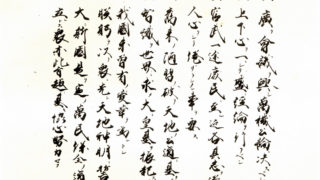 廣ク會議ヲ興シ萬機公論ニ決スヘシ
上下心ヲ一ニシテ盛ニ經綸ヲ行フヘシ
官武一途庶民ニ至ル迄各其志ヲ遂
人心ヲシテ倦マサラシメン事ヲ要ス
舊來ノ陋習ヲ破リ天地ノ公道ニ基
智識ヲ世界ニ求メ大ニ皇基ヲ振起
我國未曾有ノ變革ヲ爲ントシ
朕躬ヲ以テ衆ニ先ンシ天地神明ニ誓
大ニ斯國是ヲ定メ萬民保全ノ道
立ントス衆亦此旨趣ニ基キ協心努力セヨ